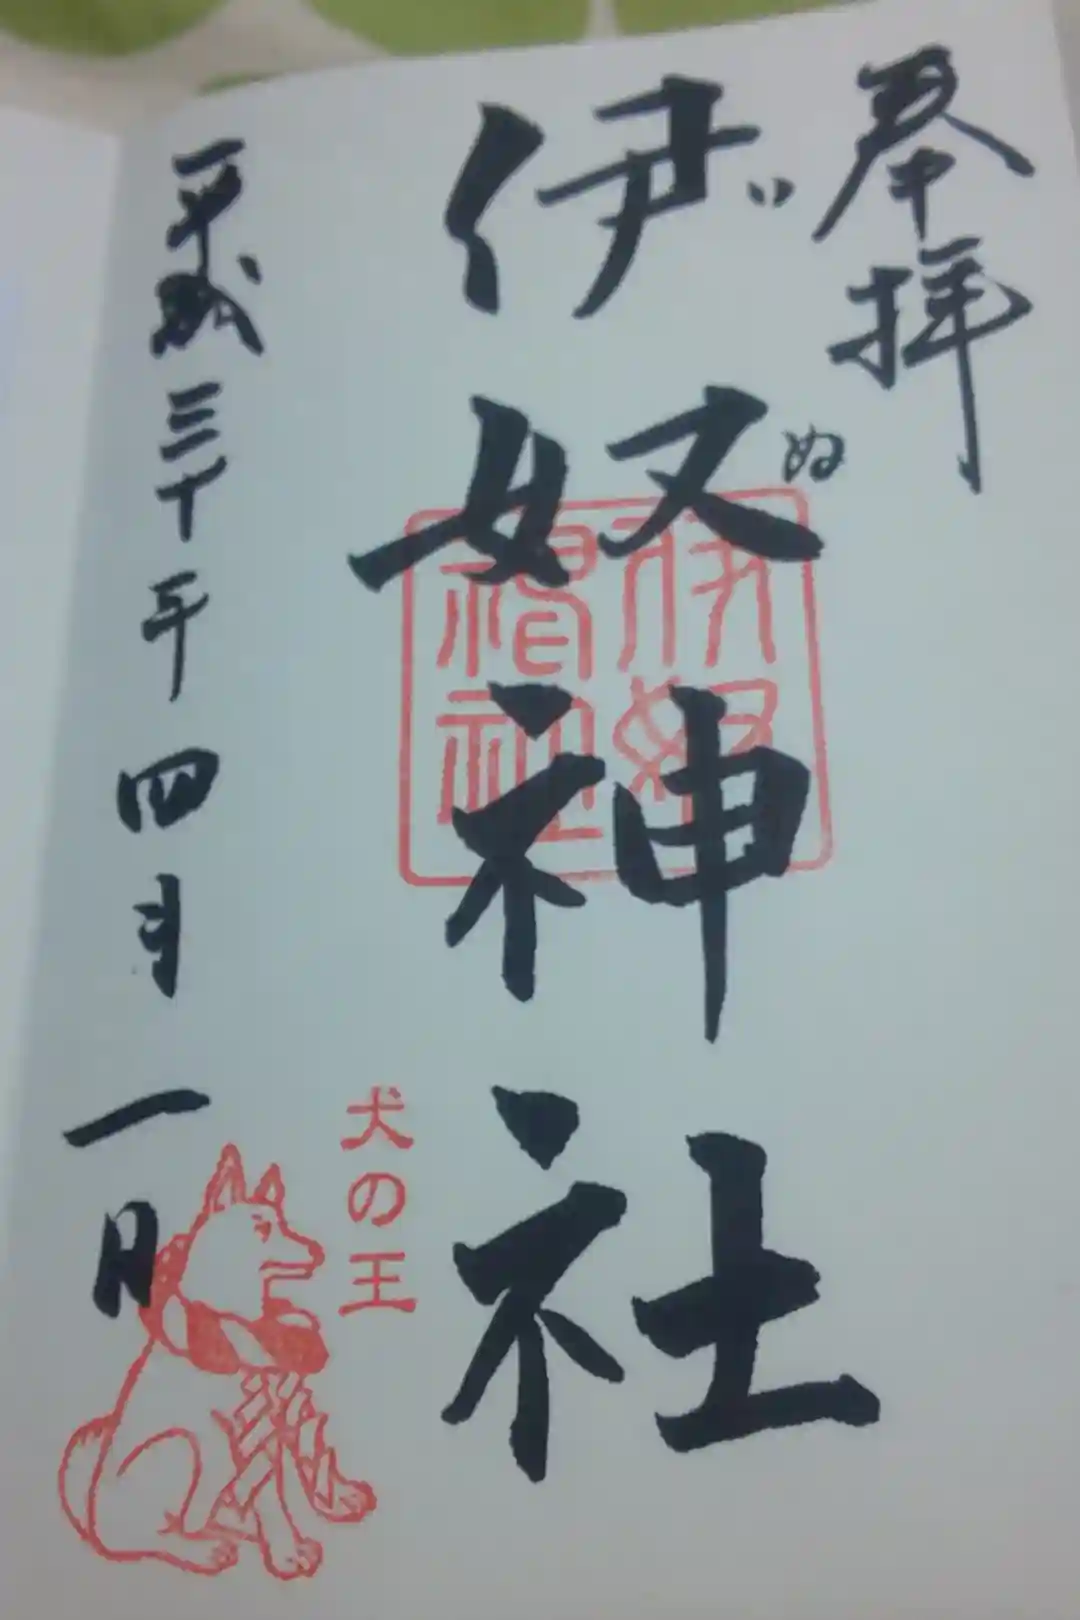 奉拝
伊奴神社
い
ぬ
伊奴
神社
犬の王
平成三十年四月一日